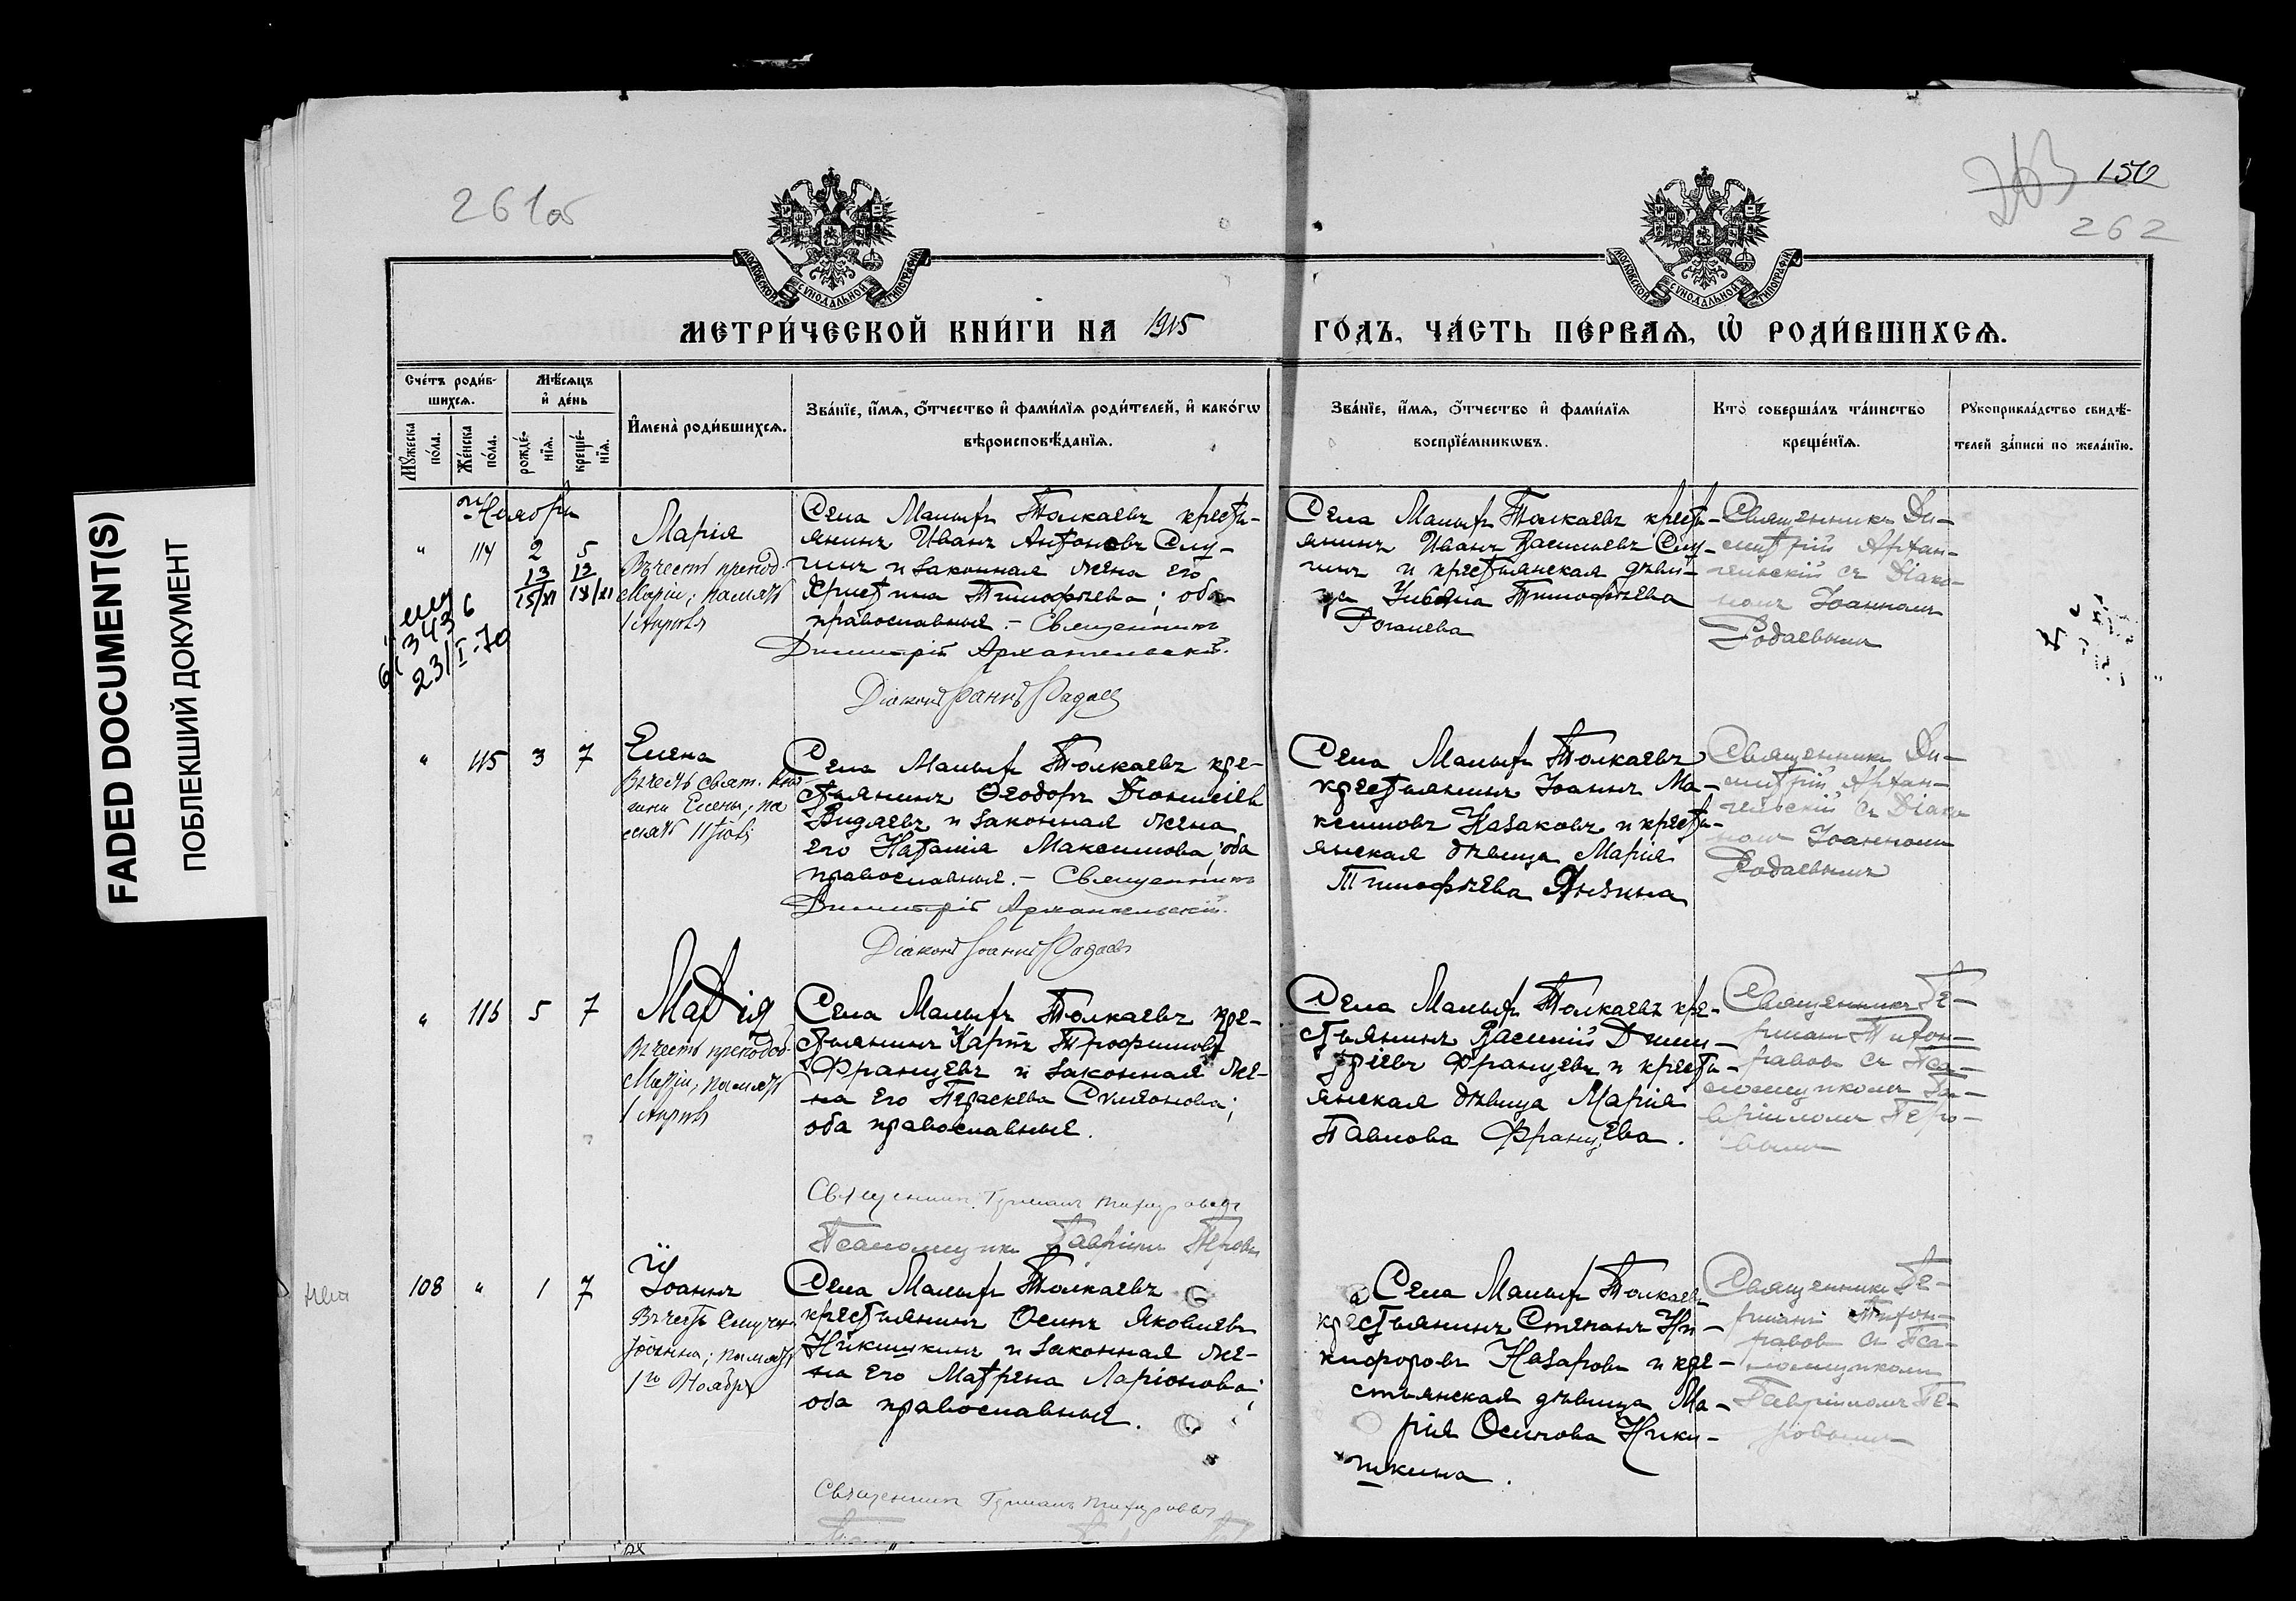 FADED DOCUMENT(S)
ПОБЛЕКШИЙ ДОКУМЕНТ
261об
263
150
262
МОСКОВСКОЙ СѴНОДАЛЬНОЙ ТИПОГРАФІИ
МОСКОВСКОЙ СѴНОДАЛЬНОЙ ТИПОГРАФІИ
МЕТРИ́ЧЕСКОЙ КНИ́ГИ НА 1915
ГО́ДЪ, ЧА́СТЬ ПЕ́РВАѦ, Ѡ҆ РОДИ́ВШИХСѦ.
Сче́тъ роди́в-
шихсѧ.
Мꙋ́жеска
по́ла.
Же́нска
по́ла.
Мѣ́сѧцъ
и҆ де́нь
рожде́-
нїѧ.
креще́-
нїѧ.
И҆мена̀ роди́вшихсѧ.
Зва́нїе, и҆́мѧ, ѻ҆́тчество и҆ фами́лїѧ роди́телей, и҆ како́гѡ
вѣроисповѣ́данїѧ.
Зва́нїе, и҆́мѧ, ѻ҆́тчество и҆ фами́лїѧ
воспрїе́мникѡвъ.
Кто̀ соверша́лъ та́инство
креще́нїѧ.
Рꙋкоприкла́дство свидѣ́-
телей за́писи по жела́нїю.
Ноября
" 114 2 5
13 13
15/XI 18/XI
3436
23/I-70
Марія
Въ честь препод.
Маріи; память
1 Апрѣля
Села Малыхъ Толкаевъ крестья-
янинъ Иванъ Антоновъ Слу-
гинъ и законная жена его
Христина Тимофѣева; оба
православные. – Священникъ
Димитрій Архангельскій.
Діаконъ Іоаннъ Родаевъ
Села Малыхъ Толкаевъ кресть-
янинъ Иванъ Васильевъ Слу-
гинъ и крестьянская дѣви-
ца Тимофѣева
Рогачева
Священникъ Ди-
митрій Архан-
гельскій съ Діако-
номъ Іоанномъ
Родаевымъ
" 115 3 7
Елена
Въ честь свят.
Елены; па
мять 11 Іюля
Села Малыхъ Толкаевъ кре-
стьянинъ Ѳеодоръ Діонисіевъ
Видяевъ и законная жена
его Наталія Максимова; оба
православные. – Священникъ
Димитрій Архангельскій.
Діаконъ Іоаннъ Родаевъ
Села Малыхъ Толкаевъ
крестьянинъ Іоаннъ Ма-
ксимовъ Казаковъ и кресть-
янская дѣвица Марія
Тимофѣева
Священникъ Ди-
митрій Архан-
гельскій съ Діако
номъ Іоанномъ
Родаевымъ
" 116 5 7
Марія
Въ честь преподоб.
Маріи; память
1 Апрѣля
Села Малыхъ Толкаевъ кре-
стьянинъ Карпъ Трофимовъ
Францевъ и законная же-
на его Параскева Симеонова;
оба православные.
Священникъ Германъ Тихонравовъ
Псаломщикъ Гавріилъ Перовъ
Села Малыхъ Толкаевъ кре-
стьянинъ Василій Дими-
тріевъ Францевъ и кресть-
янская дѣвица Марія
Павлова Францева.
Священникъ Ге-
рманъ Тихон-
равовъ съ Пса-
ломщикомъ Га-
вріиломъ Перо-
вымъ
108 " 1 7
Іоаннъ
Въ честь
Іоанна; память
1го Ноября
Села Малыхъ Толкаевъ
крестьянинъ Осипъ Яковлевъ
Никишкинъ и законная же-
на его Матрена Ларіонова;
оба православные.
Священникъ Германъ Тихонравовъ
Села Малыхъ Толкаевъ
крестьянинъ Степанъ Ни-
кифоровъ Назаровъ и кре-
стьянская дѣвица Ма-
рія Осипова Ники-
шкина.
Священникъ Ге-
рманъ Тихон-
равовъ съ Пса-
ломщикомъ
Гавріиломъ Пе-
ровымъ